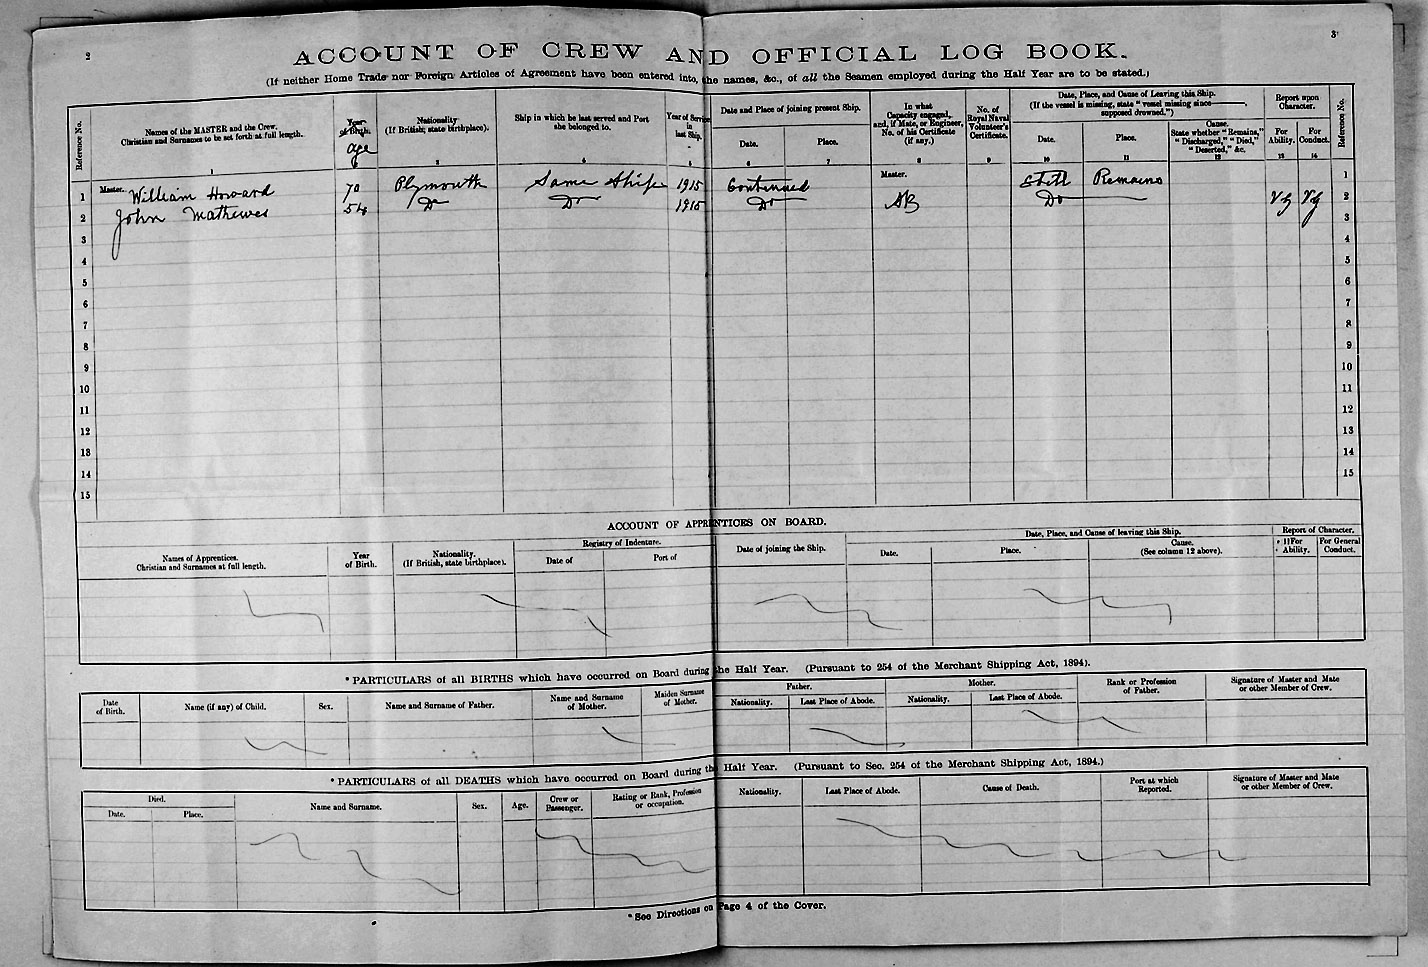 2
3
ACCOUNT OF CREW AND OFFICIAL LOG BOOK.
(If neither Home Trade nor Foreign Articles of Agreement have been entered into, the names, &c., of all the Seamen employed during the Half Year are to be stated.)
Reference No.
Names of the MASTER and the Crew.
Christian and Surnames to be set forth at full length.
1
Year of Birth.
age
Nationality
(If British, state birthplace).
3
Ship in which he last served and Port she belonged to.
4
Year of Service in last Ship.
5
Date and Place of joining present Ship.
Date.
6
Place.
7
In what Capacity engaged, and, if Mate, or Engineer, No. of his Certificate (if any.)
8
No. of Royal Naval Volunteer's Certificate.
9
Date, Place, and Cause of Leaving this Ship.
(If the vessel is missing, state "vessel missing since———, supposed drowned.")
Date.
10
Place.
11
Cause.
State whether "Remains," "Discharged," "Died," "Deserted," &c.
12
Report upon Character.
For Ability.
13
For Conduct.
14
Reference No.
1 Master. William Howard 70 Plymouth Same Ship 1915 Continued Master. Still Remains 1
2 John Mathews 54 Do Do 1915 Do AB Do Vg Vg 2
3 3
4 4
5 5
6 6
7 7
8 8
9 9
10 10
11 11
12 12
13 13
14 14
15 15
ACCOUNT OF APPRENTICES ON BOARD.
Names of Apprentices.
Christian and Surnames at full length.
Year of Birth.
Nationality.
(If British, state birthplace).
Registry of Indenture.
Date of
Port of
Date of joining the Ship.
Date, Place, and Cause of leaving this Ship.
Date.
Place.
Cause.
(See column 12 above).
Report of Character.
For Ability.
For General Conduct.
*PARTICULARS of all BIRTHS which have occurred on Board during the Half Year. (Pursuant to 254 of the Merchant Shipping Act, 1894).
Date of Birth.
Name (if any) of Child.
Sex.
Name and Surname of Father.
Name and Surname of Mother.
Maiden Surname of Mother.
Father.
Nationality.
Last Place of Abode.
Mother.
Nationality.
Last Place of Abode.
Rank or Profession of Father.
Signature of Master and Mate or other Member of Crew.
*PARTICULARS of all DEATHS which have occurred on Board during the Half Year. (Pursuant to Sec. 254 of the Merchant Shipping Act, 1894.)
Died.
Date.
Place.
Name and Surname.
Sex.
Age.
Crew or Passenger.
Rating or Rank, Profession or occupation.
Nationality.
Last Place of Abode.
Cause of Death.
Port at which Reported.
Signature of Master and Mate or other Member of Crew.
*See Directions on Page 4 of the Cover.